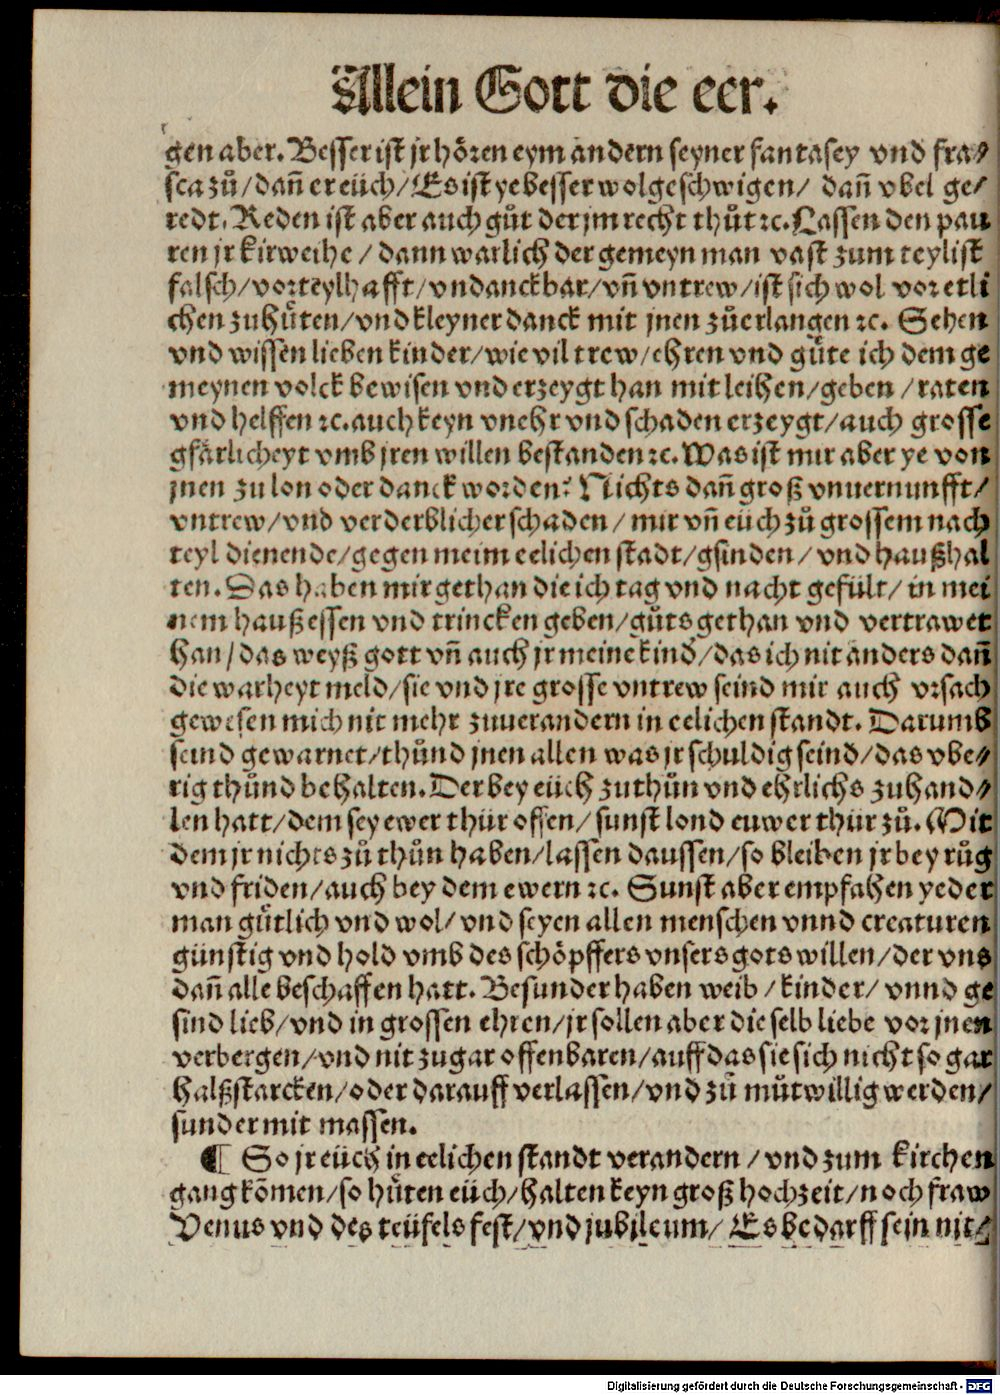 Allein Gott die eer.
gen aber. Besser ist jr hören eym andern seyner fantasey vnd fra⸗
sca zů/ dañ er eüch/ Es ist ye besser wol geschwigen/ dañ vbel ge⸗
redt. Reden ist aber auch gůt der jm recht thůt ⁊c. Lassen den pau
ren jr kirweihe/ dann warlich der gemeyn man vast zum teylist
falsch/ vorteylhafft/ vndanckbar/ vñ vntrew/ ist sich wol vor etli
chen zuhůten/ vnd kleyner danck mit jnen zůerlangen ⁊c. Sehen
vnd wissen lieben kinder/ wie vil trew/ ehren vnd gůte ich dem ge
meynen volck bewisen vnd erzeygt han mit leihen/ geben/ raten
vnd helffen ⁊c. auch keyn vnehr vnd schaden erzeygt/ auch grosse
gfärlicheyt vmb jren willen bestanden ⁊c. Was ist mir aber ye von
jnen zu lon oder danck worden? Nichts dañ groß vnuernunfft/
vntrew/ vnd verderblicher schaden/ mir vñ eüch zů grossem nach
teyl dienende/ gegen meim eelichen stadt/ gsinden/ vnd haußhal
ten. Das haben mir gethan die ich tag vnd nacht gefült/ in mei
nem hauß essen vnd trincken geben/ gůts gethan vnd vertrawet
han/ das weyß gott vñ auch jr meine kind/ das ich nit anders dañ
die warheyt meld/ sie vnd jre grosse vntrew seind mir auch vrsach
gewesen mich nit mehr zuuerandern in eelichen standt. Darumb
seind gewarnet/ thůnd jnen allen was jr schuldig seind/ das vbe⸗
rig thůnd behalten. Der bey eüch zuthůn vnd ehrlichs zuhand⸗
len hatt/ dem sey ewer thür offen/ sunst lond euwer thür zů. Mit
dem jr nichts zů thůn haben/ lassen daussen/ so bleiben jr bey růg
vnd friden/ auch bey dem ewern ⁊c. Sunst aber empfahen yeder
man gůtlich vnd wol/ vnd seyen allen menschen vnnd creaturen
günstig vnd hold vmb des schöpffers vnsers gots willen/ der vns
dañ alle beschaffen hatt. Besunder haben weib/ kinder/ vnnd ge
sind lieb/ vnd in grossen ehren/ jr sollen aber die selb liebe vor jnen
verbergen/ vnd nit zugar offenbaren/ auff das sie sich nicht so gar
halßstarcken/ oder darauff verlassen/ vnd zů můtwillig werden/
sunder mit massen.
¶ So jr eüch in eelichen standt verandern/ vnd zum kirchen
gang kõmen/ so hůten eüch/ halten keyn groß hochzeit/ noch fraw
Venus vnd des teüfels fest/ vnd jubileum/ Es bedarff sein nit/
Digitalisierung gefördert durch die Deutsche Forschungsgemeinschaft - DFG